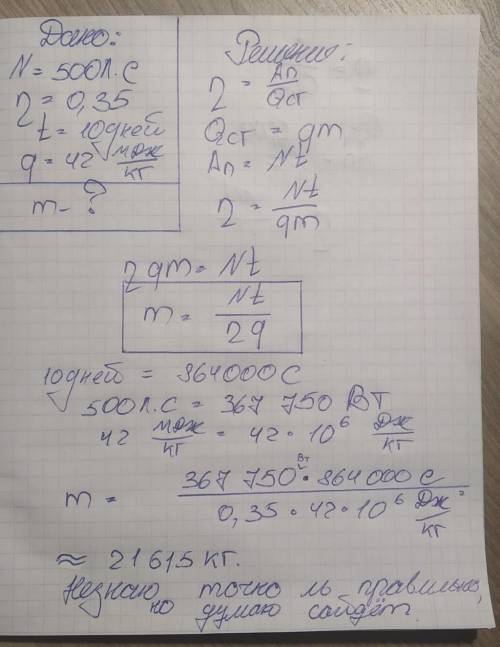 Дано:
N = 500Л.С
η = 0,35
t = 10дней
q = 42 МДж/кг
m - ?
Решение:
η = Ап/Qст
Qст = qm
Ап = Nt
η = Nt/qm
ηqm = Nt
m = Nt/ηq
10дней = 864000 С
500Л.С = 367 750 Вт
42 МДж/кг = 42 · 10⁶ Дж/кг
m = 367 750 Вт · 864000 С / 0,35 · 42 · 10⁶ Дж/кг =
≈ 21615 кг.
Незнаю точно ль правильно,
но думаю сойдёт